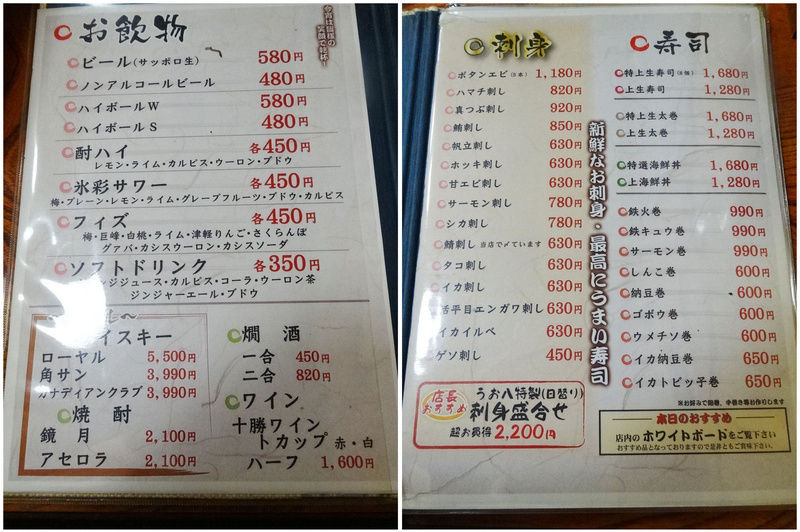 お飲物
今宵は皆様の
笑顔で乾杯!
ビール(サッポロ生) 580円
ノンアルコールビール 480円
ハイボールW 580円
ハイボールS 480円
酎ハイ 各450円
レモン・ライム・カルピス・ウーロン・ブドウ
氷彩サワー 各450円
梅・プレーン・レモン・ライム・グレープフルーツ・ブドウ・カルピス
フィズ 各450円
梅・巨峰・白桃・ライム・津軽りんご・さくらんぼ
グァバ・カシスウーロン・カシスソーダ
ソフトドリンク 各350円
ンジジュース・カルピス・コーラ・ウーロン茶
ジンジャーエール・ブドウ
イスキー
ローヤル 5,500円
角サン 3,990円
カナディアンクラブ 3,990円
焼酎
鏡月 2,100円
アセロラ 2,100円
燗酒
一合 450円
二合 820円
ワイン
十勝ワイン
トカップ 赤・白
ハーフ 1,600円
刺身
ボタンエビ(3本) 1,180円
ハマチ刺し 820円
真つぶ刺し 920円
鮪刺し 850円
帆立刺し 630円
ホッキ刺し 630円
甘エビ刺し 630円
サーモン刺し 780円
シカ刺し 780円
鯖刺し 当店で〆ています 630円
タコ刺し 630円
イカ刺し 630円
活平目エンガワ刺し 630円
イカイルベ 630円
ゲソ刺し 450円
店長
おすすめ
うお八特製(日替り)
刺身盛合せ
超お買得 2,200円
新鮮なお刺身・最高にうまい寿司
寿司
特上生寿司(8個) 1,680円
上生寿司 1,280円
特上生太巻 1,680円
上生太巻 1,280円
特選海鮮丼 1,680円
上海鮮丼 1,280円
鉄火巻 990円
鉄キュウ巻 990円
サーモン巻 990円
しんこ巻 600円
納豆巻 600円
ゴボウ巻 600円
ウメチソ巻 600円
イカ納豆巻 650円
イカトビッ子巻 650円
※お好みで細巻、手巻き等お作りします
本日のおすすめ
店内のホワイトボードをご覧下さい
おすすめ品となっておりますので是非ともご賞味下さい。